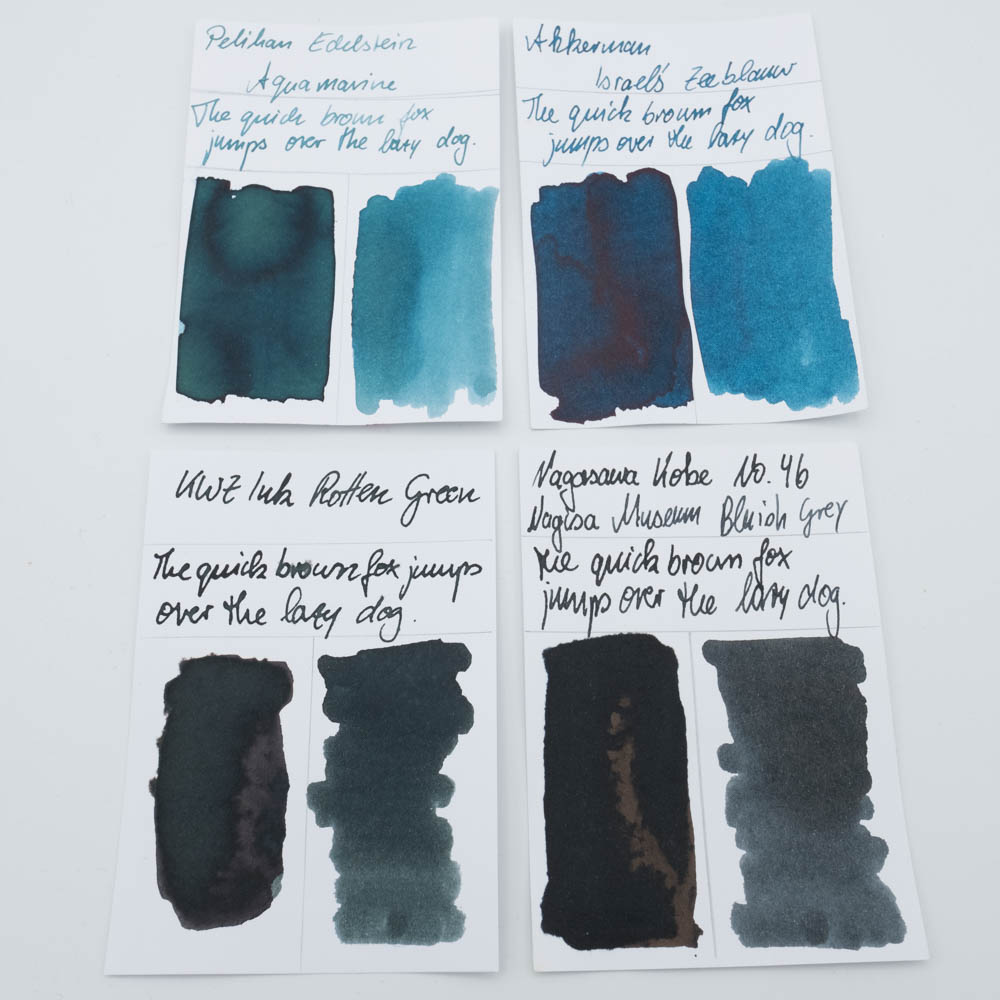 Pelikan Edelstein
Aquamarine
The quick brown fox
jumps over the lazy dog.
Akkerman
Israels Zeeblauw
The quick brown fox
jumps over the lazy dog.
KWZ Ink Rotten Green
The quick brown fox jumps
over the lazy dog.
Nagasawa Kobe No. 46
Nagisa Museum Bluish Grey
The quick brown fox
jumps over the lazy dog.